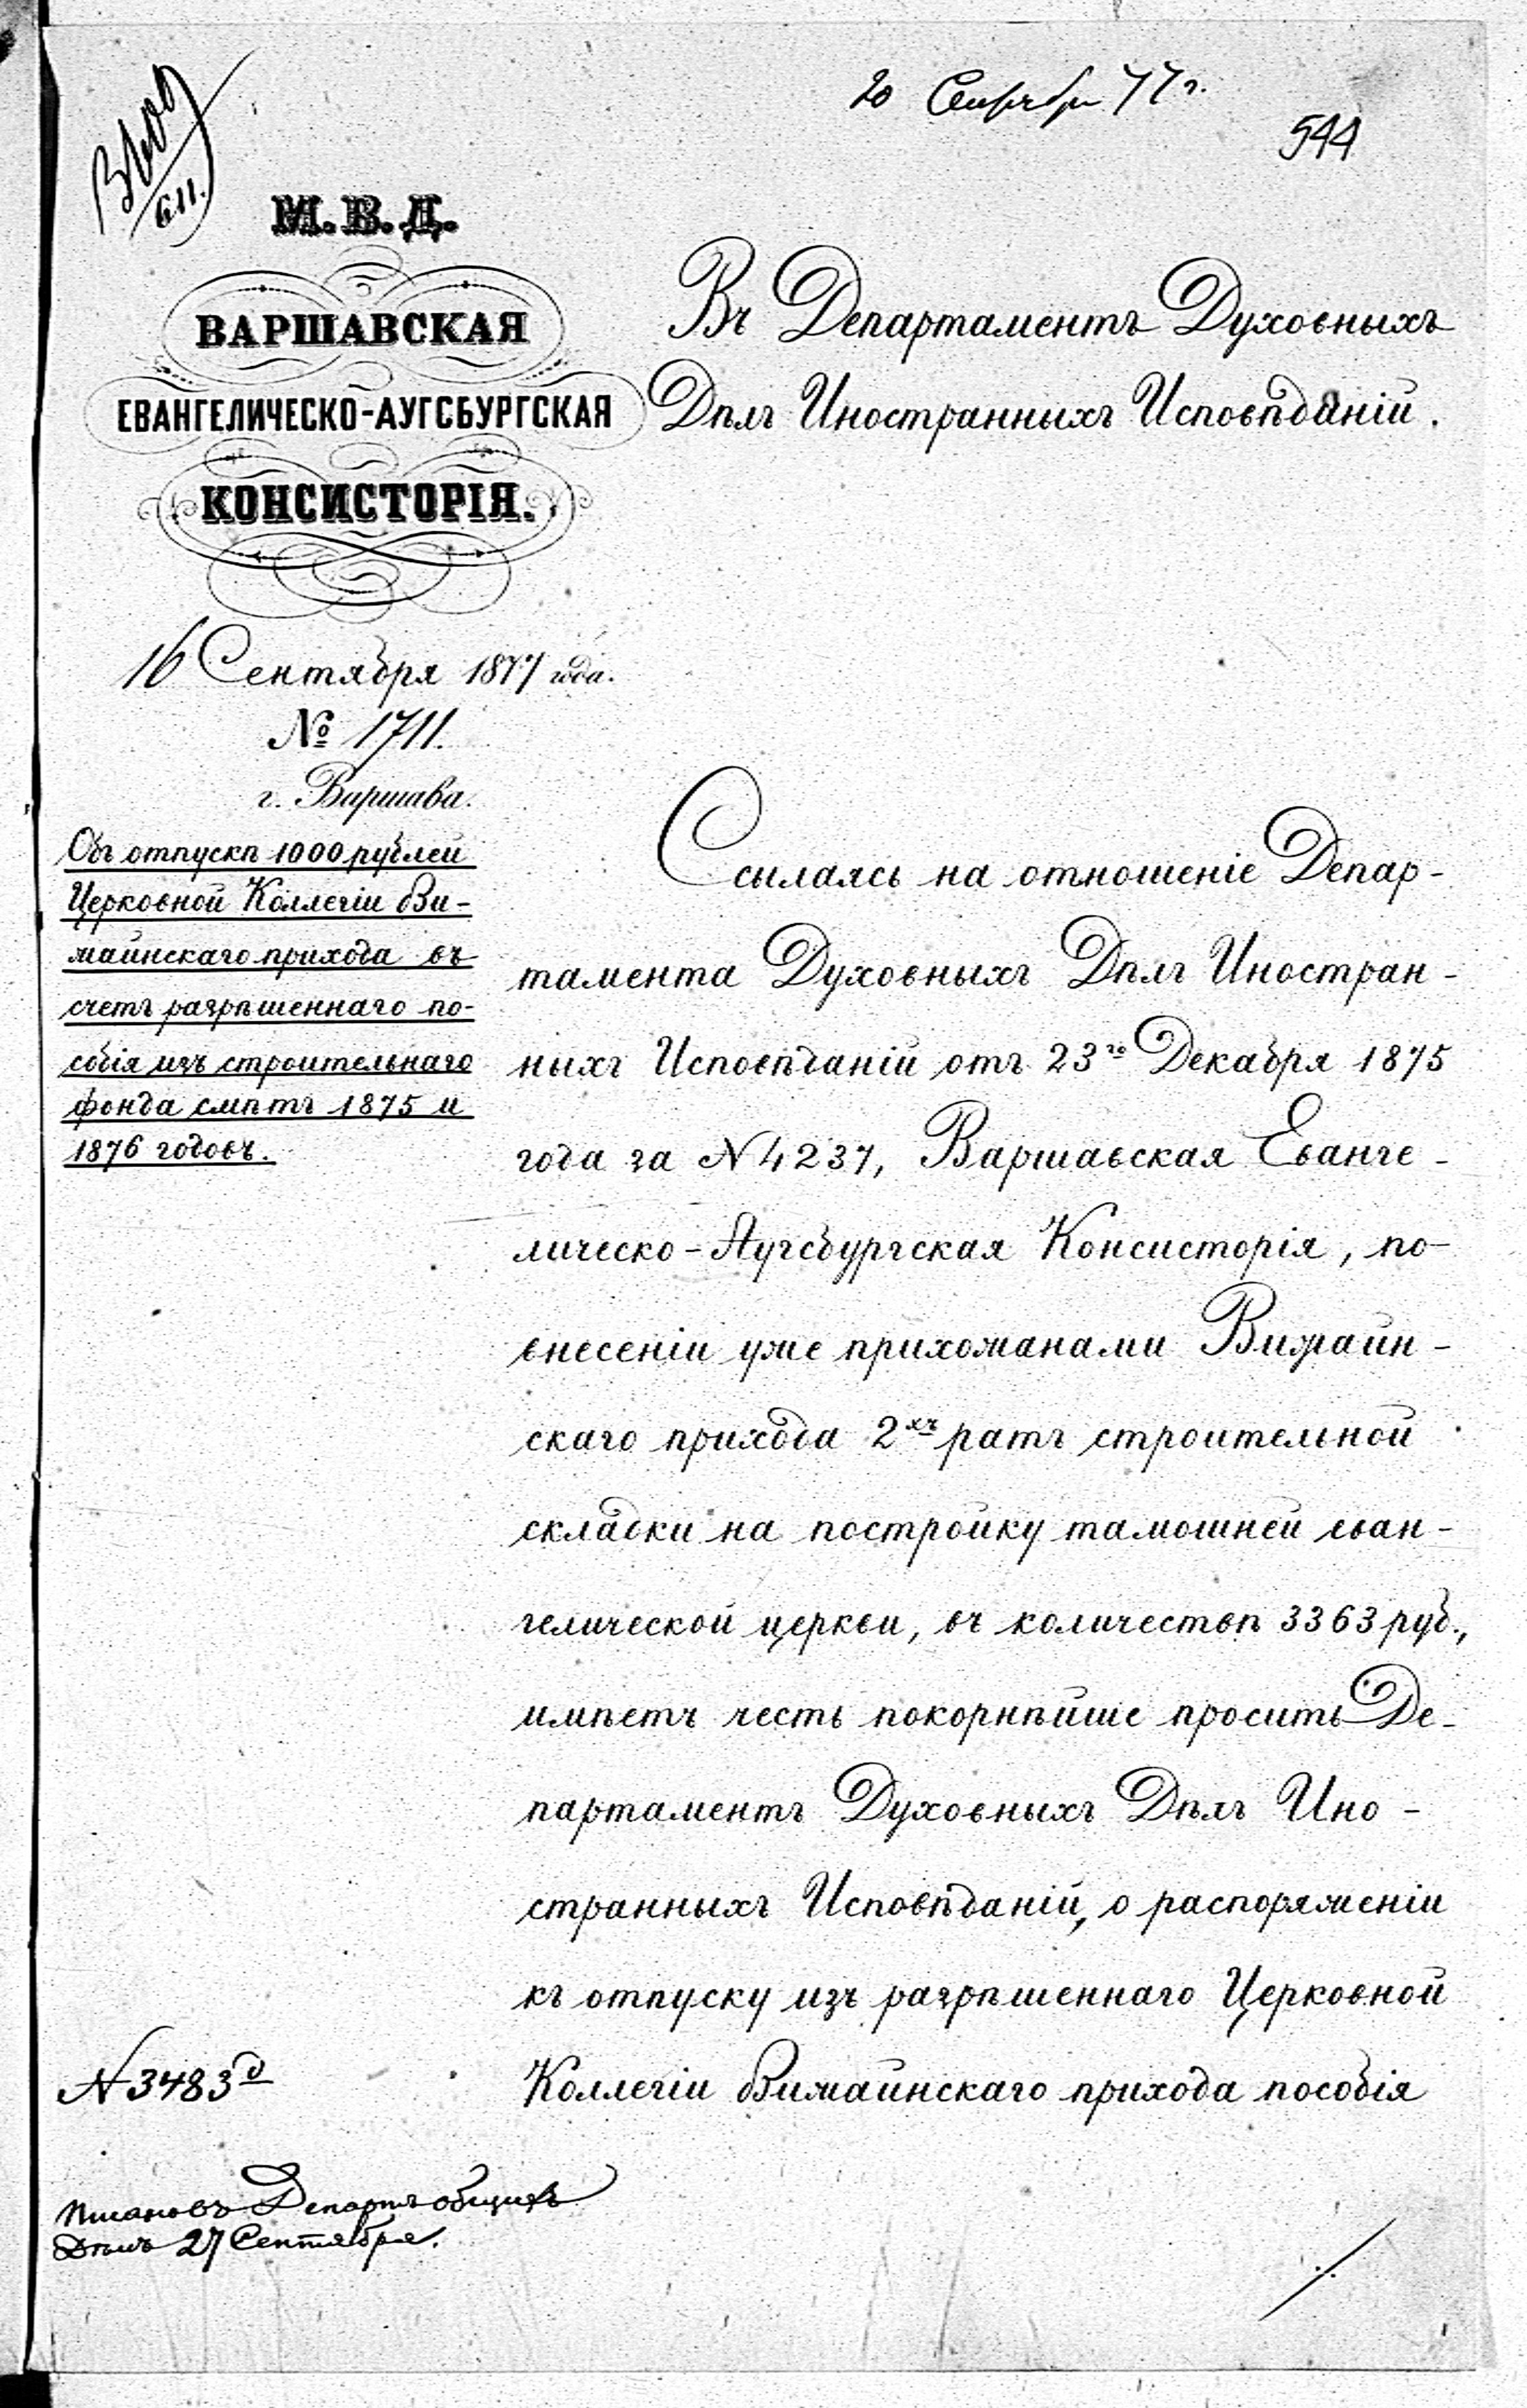 20 Сентября 77 г.
544
М. В. Д.
ВАРШАВСКАЯ
ЕВАНГЕЛИЧЕСКО-АУГСБУРГСКАЯ
КОНСИСТОРІЯ.
16 Сентября 1877 года.
№ 1711.
г. Варшава.
Объ отпускѣ 1000 рублей
Церковной Коллегіи Ви-
жайнскаго прихода въ
счетъ разрѣшеннаго по-
собія изъ строительнаго
фонда смѣтъ 1875 и
1876 годовъ.
Въ Департаментъ Духовныхъ
Дѣлъ Иностранныхъ Исповѣданій.
Ссылаясь на отношеніе Депар-
тамента Духовныхъ Дѣлъ Иностран-
ныхъ Исповѣданій отъ 23го Декабря 1875
года за N 4237, Варшавская Еванге-
лическо-Аугсбургская Консисторія, по-
внесеніи уже прихожанами Вижайн-
скаго прихода 2хъ ратъ строительной
складки на постройку тамошней еван-
гелической церкви, въ количествѣ 3363 руб.,
имѣетъ честь покорнѣйше просить Де-
партаментъ Духовныхъ Дѣлъ Ино-
странныхъ Исповѣданій, о распоряженіи
къ отпуску изъ разрѣшеннаго Церковной
Коллегіи Вижайнскаго прихода пособія
N 3483
Департ общихъ
Дѣлъ 27 Сентября.